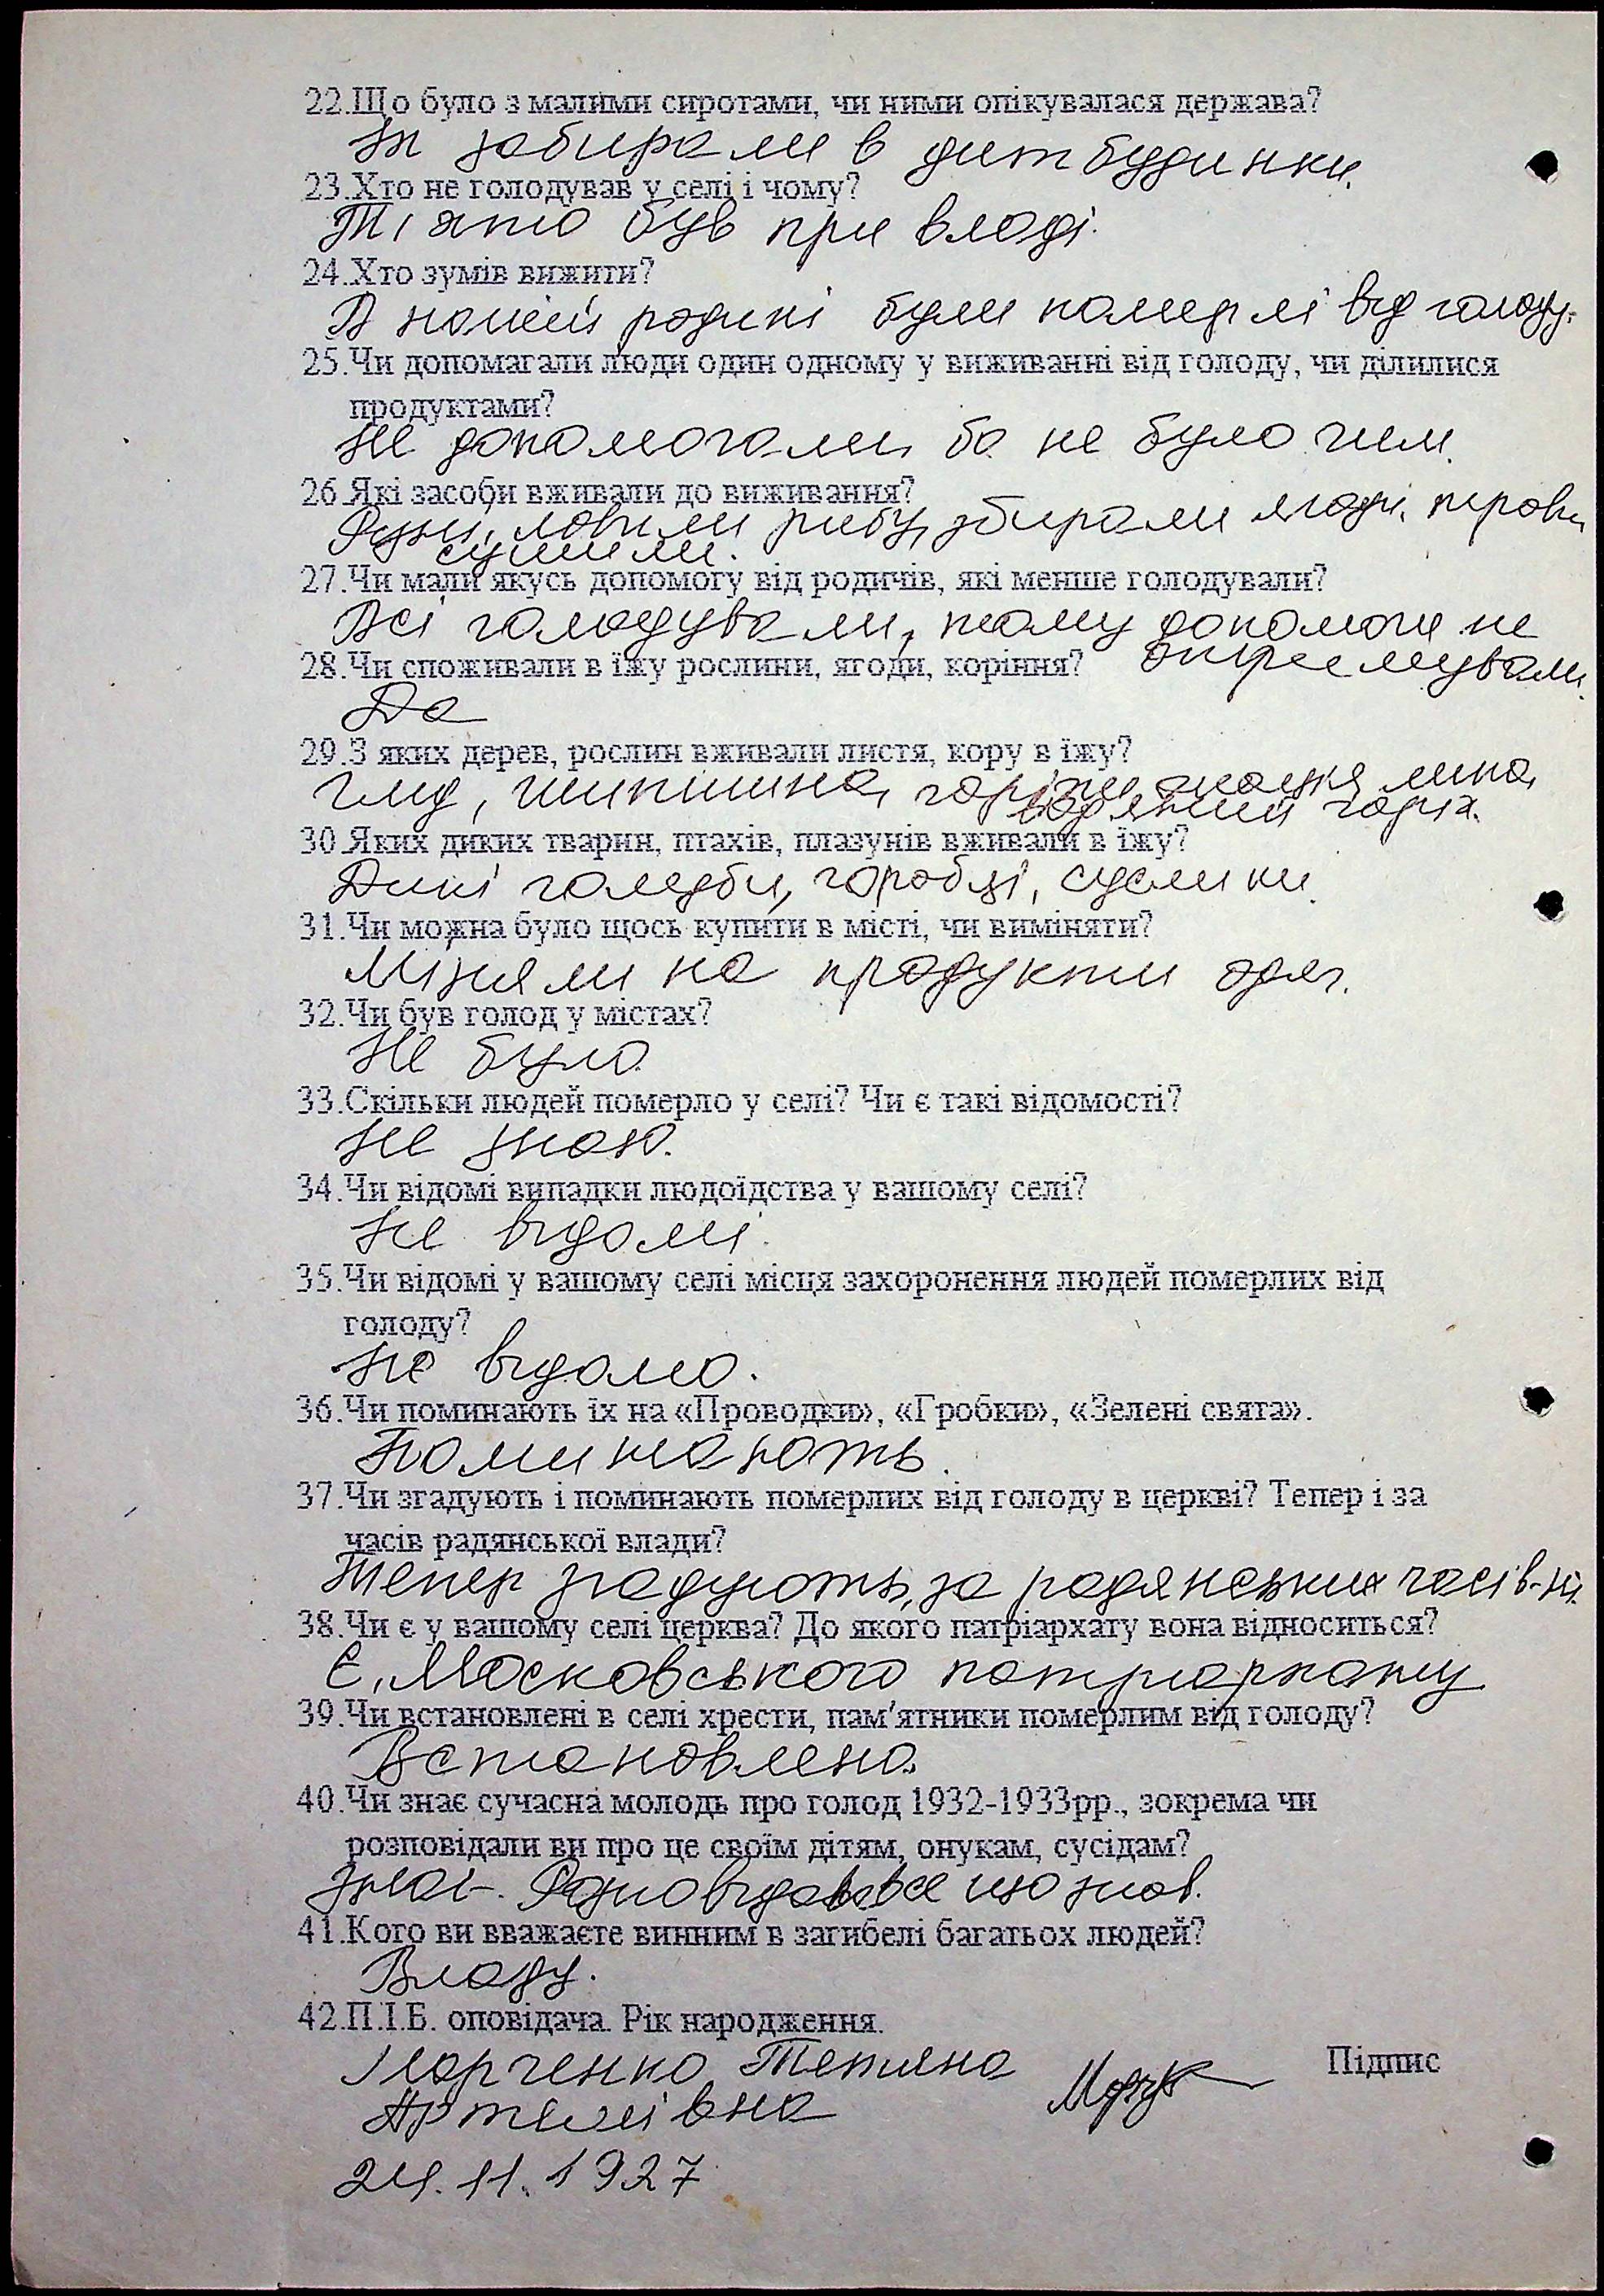 22.Що було з малими сиротами, чи ними опікувалася держава?
Їх забирали в дитбудинки.
23.Хто не голодував у селі і чому?
Ті хто був при владі.
24.Хто зумів вижити?
В нашій родині були померлі від голоду.
25.Чи допомагали люди один одному у виживанні від голоду, чи ділилися
продуктами?
Не допомогали, бо не було чим.
26.Які засоби вживали до виживання?
ловили рибу, збирали ягоди,
сушили.
27.Чи мали якусь допомогу від родичів, які менше голодували?
Всі голодували, тому допомоги не
отримували.
28.Чи споживали в їжу рослини, ягоди, коріння?
Да
29.З яких дерев, рослин вживали листя, кору в їжу?
Глід, шипшина, липа,
водяний горіх.
30.Яких диких тварин, птахів, плазунів вживали в їжу?
Дикі голуби, горобці, суслики.
31.Чи можна було щось купити в місті, чи виміняти?
Міняли на продукти одяг.
32.Чи був голод у містах?
Не було.
33.Скільки людей померло у селі? Чи є такі відомості?
Не знаю.
34.Чи відомі випадки людоїдства у вашому селі?
Не відомі.
35.Чи відомі у вашому селі місця захоронення людей померлих від
голоду?
Не відомо.
36.Чи поминають їх на «Проводки», «Гробки», «Зелені свята».
Поминають.
37.Чи згадують і поминають померлих від голоду в церкві? Тепер і за
часів радянської влади?
Тепер згадують, за радянських часів-ні.
38.Чи є у вашому селі церква? До якого патріархату вона відноситься?
Є, Московського патріархату
39.Чи встановлені в селі хрести, пам'ятники померлим від голоду?
Встановлено.
40.Чи знає сучасна молодь про голод 1932-1933рр., зокрема чи
розповідали ви про це своїм дітям, онукам, сусідам?
Знає. все що знав.
41.Кого ви вважаєте винним в загибелі багатьох людей?
Владу.
42.П.І.Б. оповідача. Рік народження.
Марченко Тетяна Підпис
Артемівна
24.11.1927